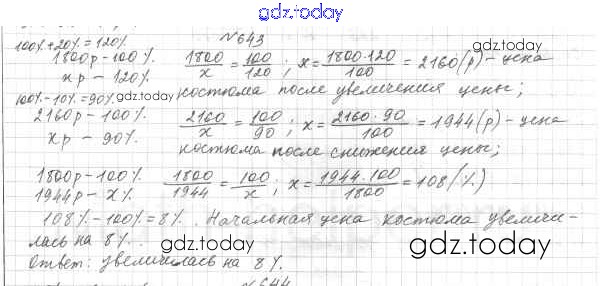 gdz.today
100%+20%=120%
№643
1800р-100%
1800/x = 100/120; x = 1800·120/100 = 2160(р)-цена
xр - 120%
100%-10%=90%
gdz.today
костюма после увеличения цены;
2160р - 100%
2160/x = 100/90; x = 2160·90/100 = 1944(р)-цена
xр - 90%
костюма после снижения цены;
1800р-100%
1800/1944 = 100/x; x = 1944·100/1800 = 108(%)
1944р-x%
108%-100%=8%. Начальная цена костюма увеличи-
лась на 8%.
gdz.today
gdz.today
Ответ: увеличилась на 8%.
№644